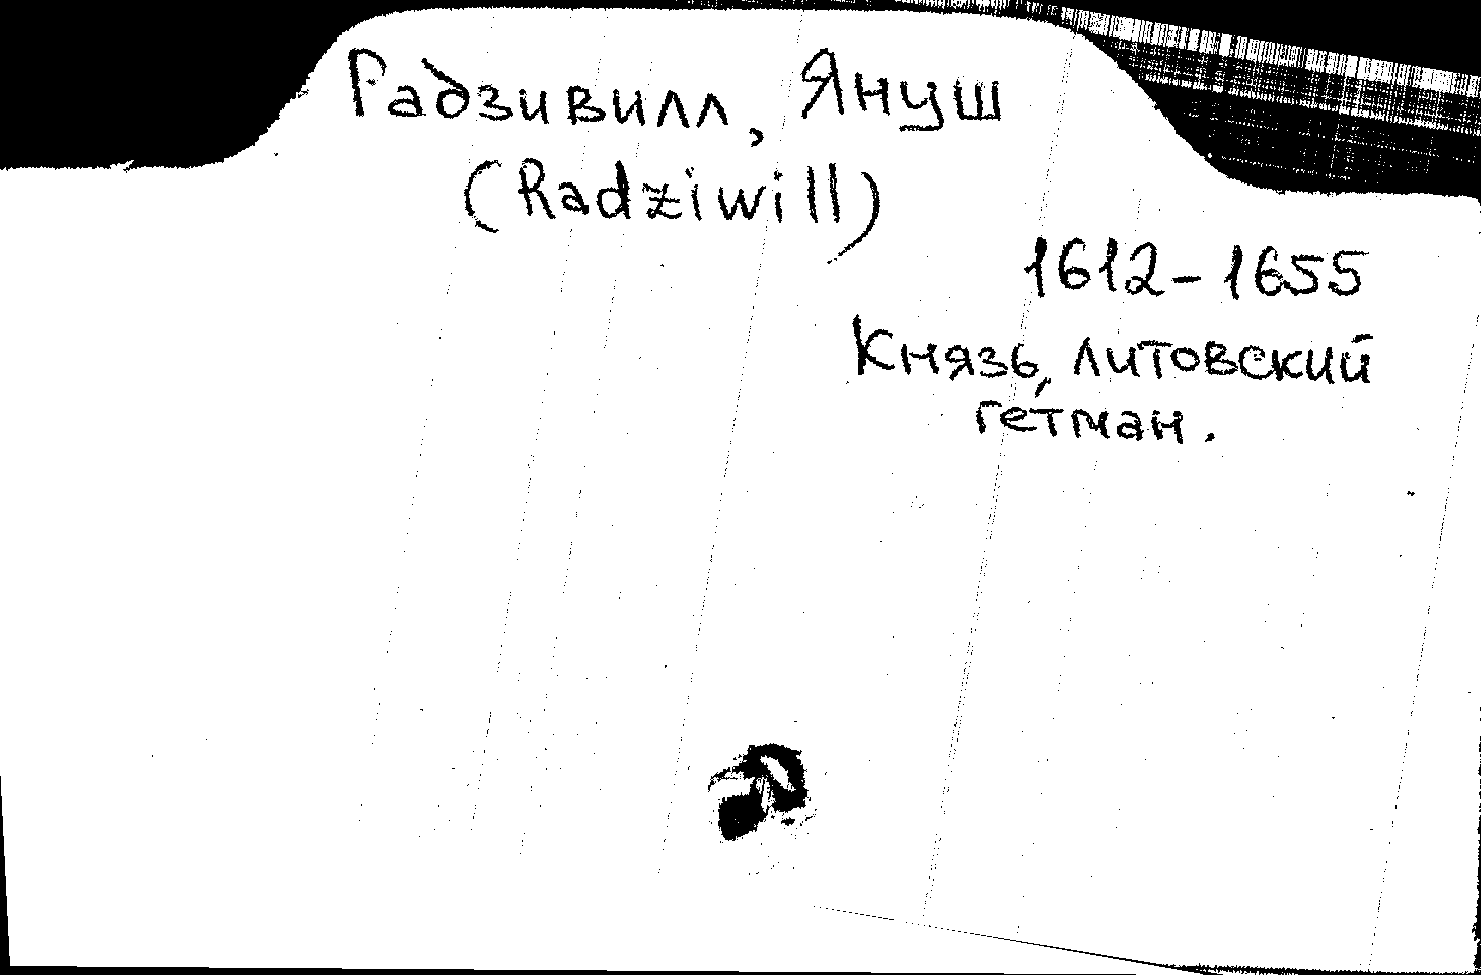 Радзивилл, Януш
(Radziwill)
1612-1655
Князь, литовский
гетман.